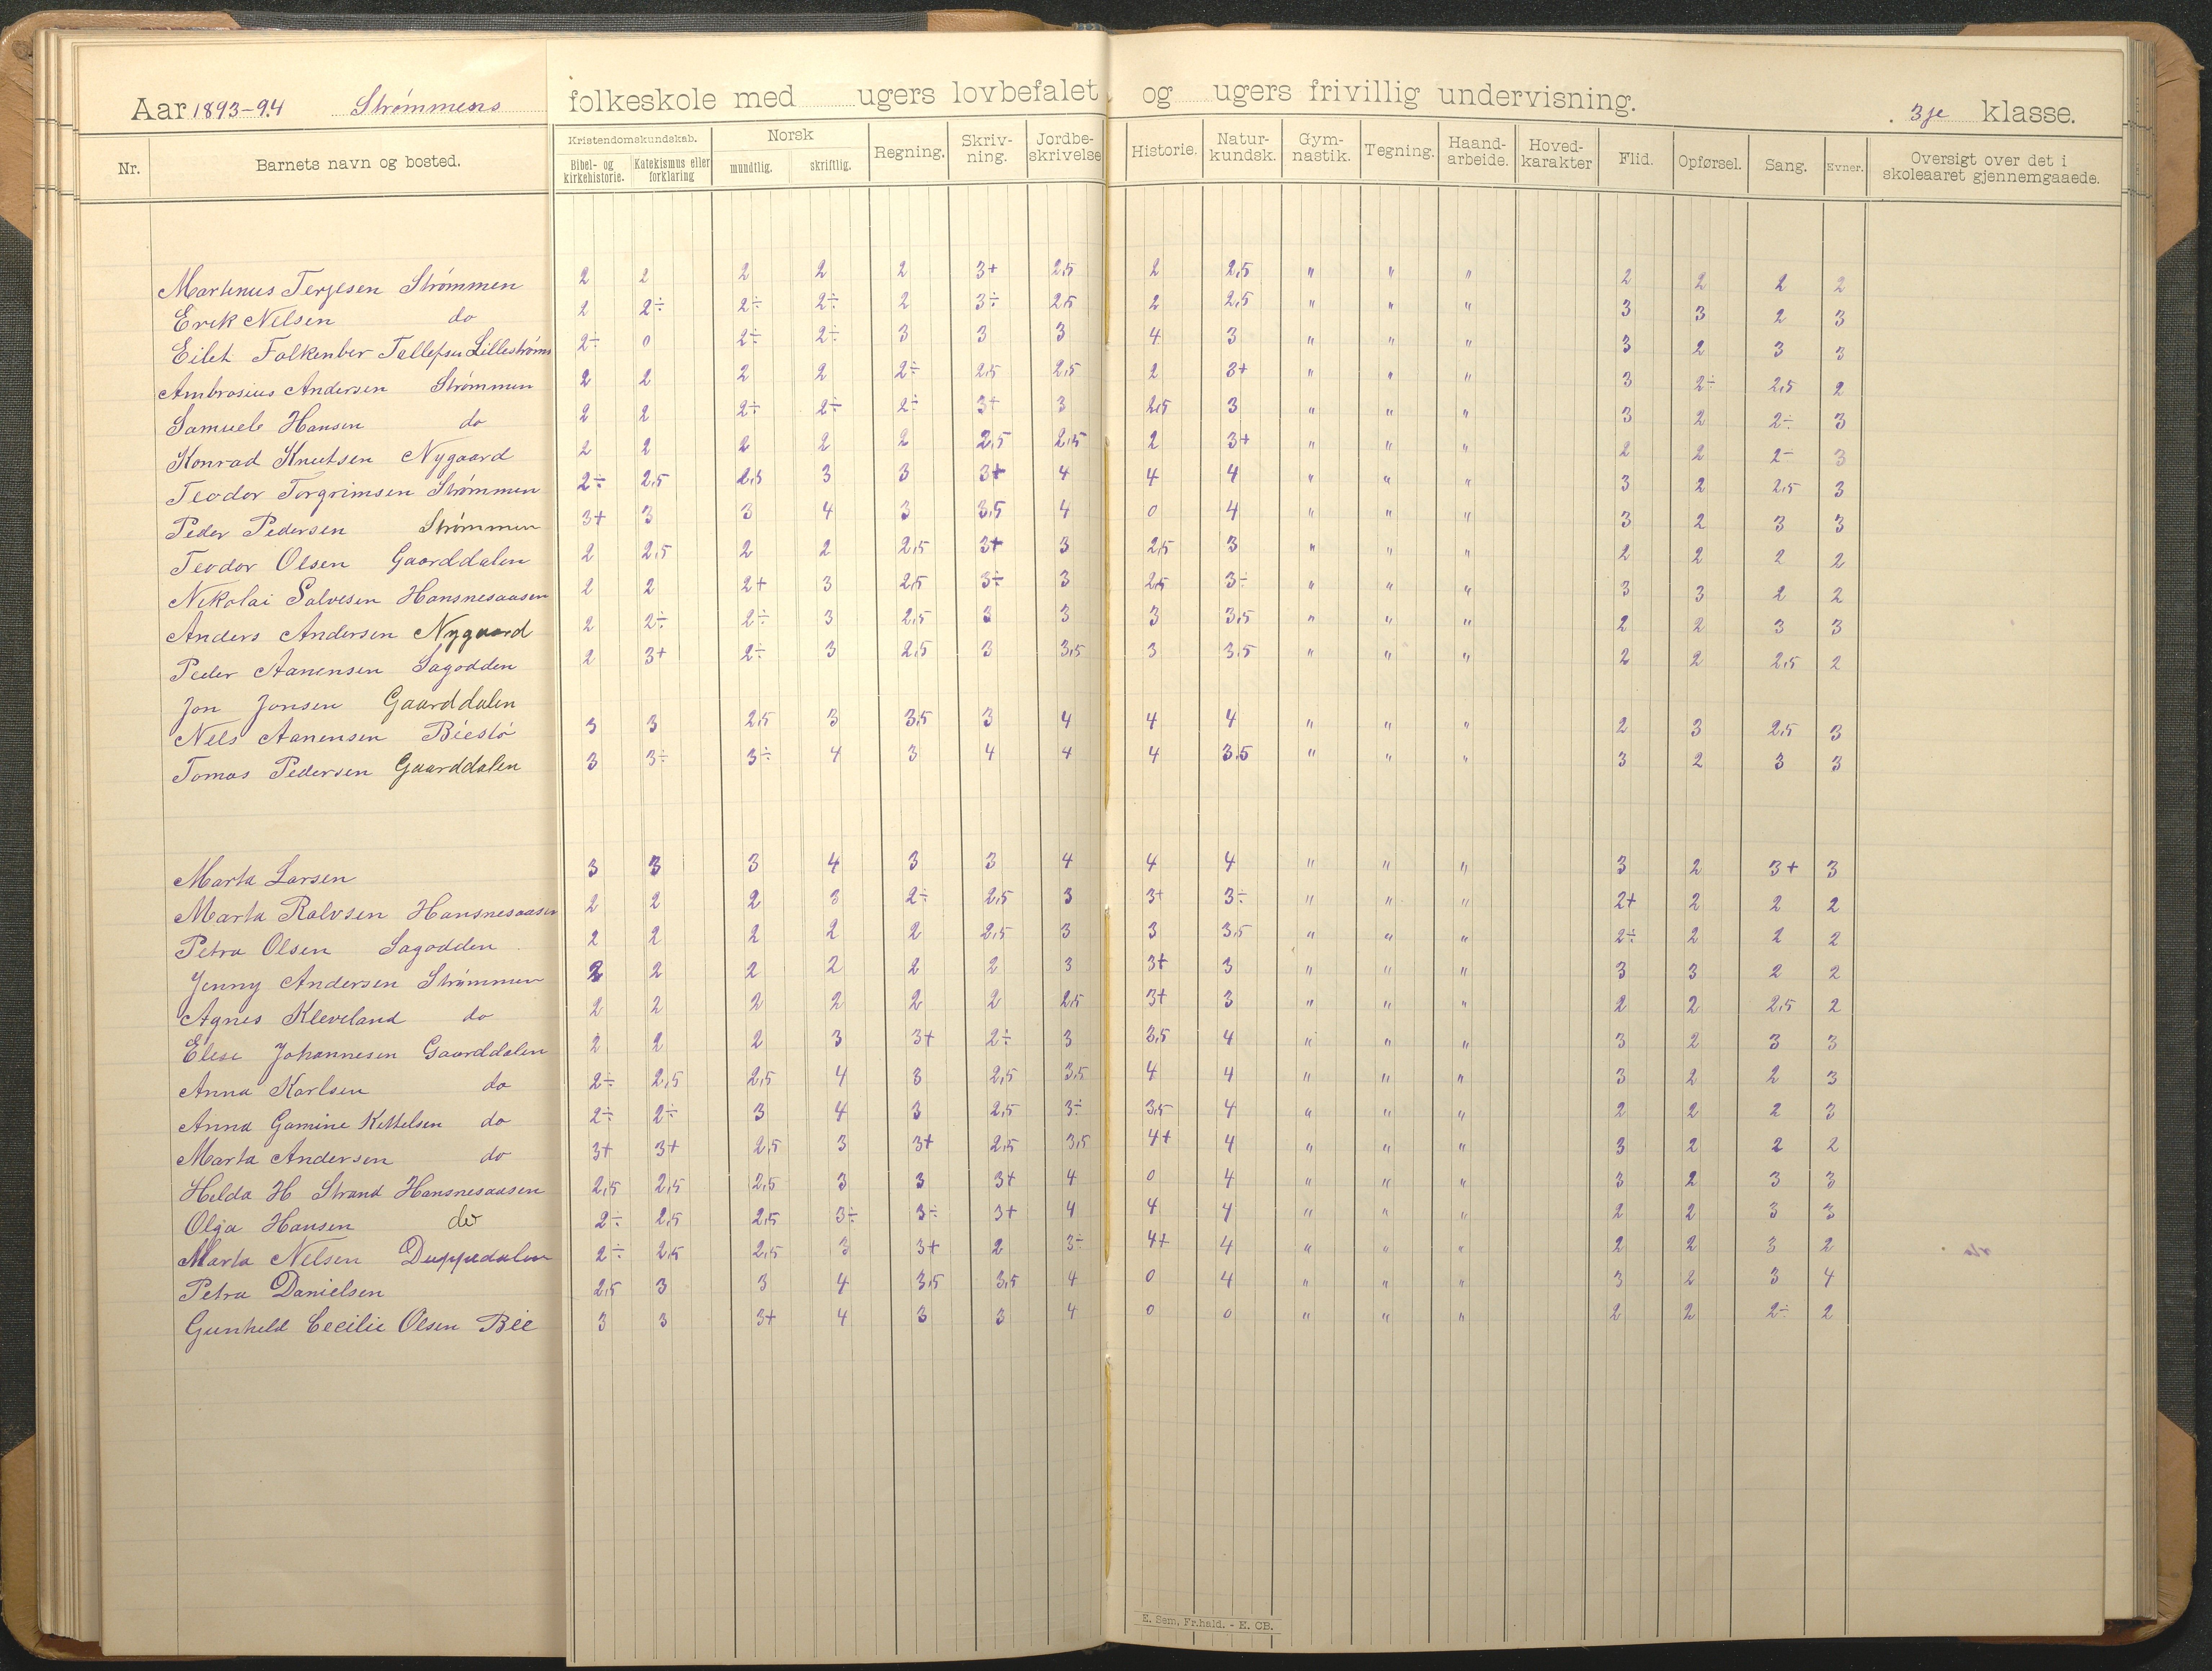 Aar 1893-94 Strømmens folkeskole med ugers lovbefalet og ugers frivillig undervisning. 3je klasse.
Nr. Barnets navn og bosted. Kristendomskundskab. Bibel- og kirkehistorie. Katekismus eller forklaring Norsk mundtlig. skriftlig. Regning. Skriv-ning. Jordbe-skrivelse Historie. Natur-kundsk. Gym-nastik. Tegning. Haand-arbeide. Hoved-karakter Flid. Opførsel. Sang. Evner. Oversigt over det i skoleaaret gjennemgaaede.
Martinus Terjesen Strømmen 2 2 2 2 2 3+ 2,5 2 2,5 " " " 2 2 2 2
Erik Nilsen do 2 2÷ 2÷ 2÷ 2 3÷ 2,5 2 2,5 " " " 3 3 2 3
Eilet Falkenber Tellefsen Lillestrøms 2÷ 0 2÷ 2÷ 3 3 3 4 3 " " " 3 2 3 3
Ambrosius Andersen Strømmen 2 2 2 2 2÷ 2,5 2,5 2 3+ " " " 3 2÷ 2,5 2
Samuele Hansen do 2 2 2÷ 2÷ 2÷ 3+ 3 2,5 3 " " " 3 2 2÷ 3
Konrad Knutsen Nygaard 2 2 2 2 2 2,5 2,5 2 3+ " " " 2 2 2- 3
Teodor Torgrimsen Strømmen 2÷ 2,5 2,5 3 3 3+ 4 4 4 " " " 3 2 2,5 3
Peder Pedersen Strømmen 3+ 3 3 4 3 3,5 4 0 4 " " " 3 2 3 3
Teodor Olsen Gaarddalen 2 2,5 2 2 2,5 3+ 3 2,5 3 " " " 2 2 2 2
Nikolai Salvesen Hansnesaasen 2 2 2+ 3 2,5 3÷ 3 2,5 3÷ " " " 3 3 2 2
Anders Andersen Nygaard 2 2÷ 2÷ 3 2,5 3 3 3 3,5 " " " 2 2 3 3
Peder Aanensen Sagodden 2 3+ 2÷ 3 2,5 3 3,5 3 3,5 " " " 2 2 2,5 2
Jon Jonsen Gaarddalen
Nils Aanensen Bieslö 3 3 2,5 3 3,5 3 4 4 4 " " " 2 3 2,5 3
Tomas Pedersen Gaarddalen 3 3÷ 3÷ 4 3 4 4 4 3,5 " " " 3 2 3 3
Marta Larsen 3 3 3 4 3 3 4 4 4 " " " 3 2 3+ 3
Marta Ralvsen Hansnesaasen 2 2 2 3 2÷ 2,5 3 3+ 3÷ " " " 2+ 2 2 2
Petra Olsen Sagodden 2 2 2 2 2 2,5 3 3 3,5 " " " 2÷ 2 2 2
Jenny Andersen Strømmen 2 2 2 2 2 2 3 3+ 3 " " " 3 3 2 2
Agnes Kleveland do 2 2 2 2 2 2 2,5 3+ 3 " " " 2 2 2,5 2
Elise Johannesen Gaarddalen 2 2 2 3 3+ 2÷ 3 3,5 4 " " " 3 2 3 3
Anna Karlsen do 2÷ 2,5 2,5 4 3 2,5 3,5 4 4 " " " 3 2 2 3
Anna Gamine Kittelsen do 2÷ 2÷ 3 4 3 2,5 3÷ 3,5 4 " " " 2 2 2 3
Marta Andersen do 3+ 3+ 2,5 3 3+ 2,5 3,5 4+ 4 " " " 3 2 2 2
Helda H Strand Hansnesaasen 2,5 2,5 2,5 3 3 3+ 4 0 4 " " " 3 2 3 3
Olga Hansen do 2÷ 2,5 2,5 3÷ 3÷ 3+ 4 4 4 " " " 2 2 3 3
Marta Nilsen Duppedalen 2÷ 2,5 2,5 3 3+ 2 3÷ 4+ 4 " " " 2 2 3 2
Petra Danielsen 2,5 3 3 4 3,5 3,5 4 0 4 " " " 3 2 3 4
Gunhild Cecilie Olsen Bie 3 3 3+ 4 3 3 4 0 0 " " " 2 2 2÷ 2
E. Sem, Fr.hald. - E. CB.